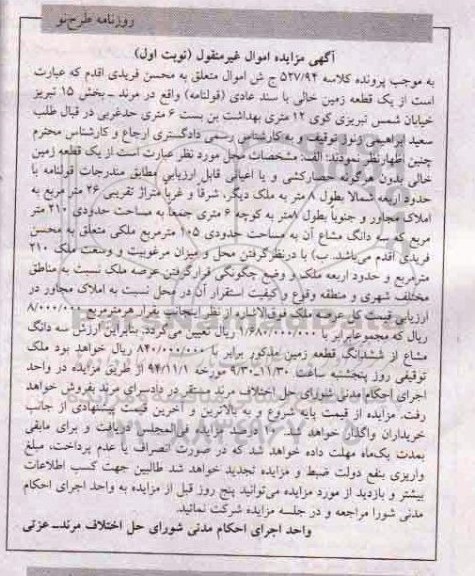 روزنامه طرح‌نو
آگهی مزایده اموال غیرمنقول (نوبت اول)
به موجب پرونده کلاسه ۵۲۷/۹۴ ج ش اموال متعلق به محسن فریدی اقدم که عبارت
است از یک قطعه زمین خالی با سند عادی (قولنامه) واقع در مرند ـ بخش ۱۵ تبریز
خیابان شمس تبریزی کوی ۱۲ متری بهداشت بن بست ۶ متری حدغربی در قبال طلب
سعید ابراهیمی زنوز توقیف و به کارشناس رسمی دادگستری ارجاع و کارشناس محترم
چنین اظهارنظر نمودند: الف: مشخصات محل مورد نظر عبارت است از یک قطعه زمین
خالی بدون هرگونه حصارکشی و یا اعیانی قابل ارزیابی مطابق مندرجات قولنامه با
حدود اربعه شمالا بطول ۸ متر به ملک دیگر، شرقاً و غرباً متراژ تقریبی ۲۶ متر مربع به
املاک مجاور و جنوباً بطول ۸متر به کوچه ۶ متری جمعاً به مساحت حدودی ۲۱۰ متر
مربع که سه دانگ مشاع آن به مساحت حدودی ۱۰۵ مترمربع ملکی متعلق به محسن
فریدی اقدم می‌باشد. ب) با درنظرگرفتن محل و میزان مرغوبیت و وسعت ملک ۲۱۰
مترمربع و حدود اربعه ملک و وضع چگونگی قرارگرفتن عرصه ملک نسبت به مناطق
مختلف شهری و منطقه وقوع و کیفیت استقرار آن در محل نسبت به املاک مجاور در
ارزیابی قیمت کل عرصه ملک فوق‌الاشاره از نظر اینجانب بقرار هرمترمربع ۸/۰۰۰/۰۰۰
ریال که مجموعا برابر با ۱/۶۸۰/۰۰۰/۰۰۰ ریال تعیین می‌گردد. بنابراین ارزش سه دانگ
مشاع از ششدانگ قطعه زمین مذکور برابر با ۸۴۰/۰۰۰/۰۰۰ ریال خواهد بود ملک
توقیفی روز پنجشنبه ساعت ۱۱/۳۰ـ۹/۳۰ مورخه ۹۴/۱۱/۱ از طریق مزایده در واحد
اجرای احکام مدنی شورای حل اختلاف مرند مستقر در دادسرای مرند بفروش خواهد
رفت. مزایده از قیمت پایه شروع و به بالاترین و آخرین قیمت پیشنهادی از جانب
خریداران واگذار خواهد شد. ۱۰ درصد مزایده فی‌المجلس دریافت و برای مابقی
بمدت یک‌ماه مهلت داده خواهد شد که در صورت انصراف یا عدم پرداخت، مبلغ
واریزی بنفع دولت ضبط و مزایده تجدید خواهد شد طالبین جهت کسب اطلاعات
بیشتر و بازدید از مورد مزایده می‌توانید پنج روز قبل از مزایده به واحد اجرای احکام
مدنی شورا مراجعه و در جلسه مزایده شرکت نمائید.
واحد اجرای احکام مدنی شورای حل اختلاف مرندـ عزتی